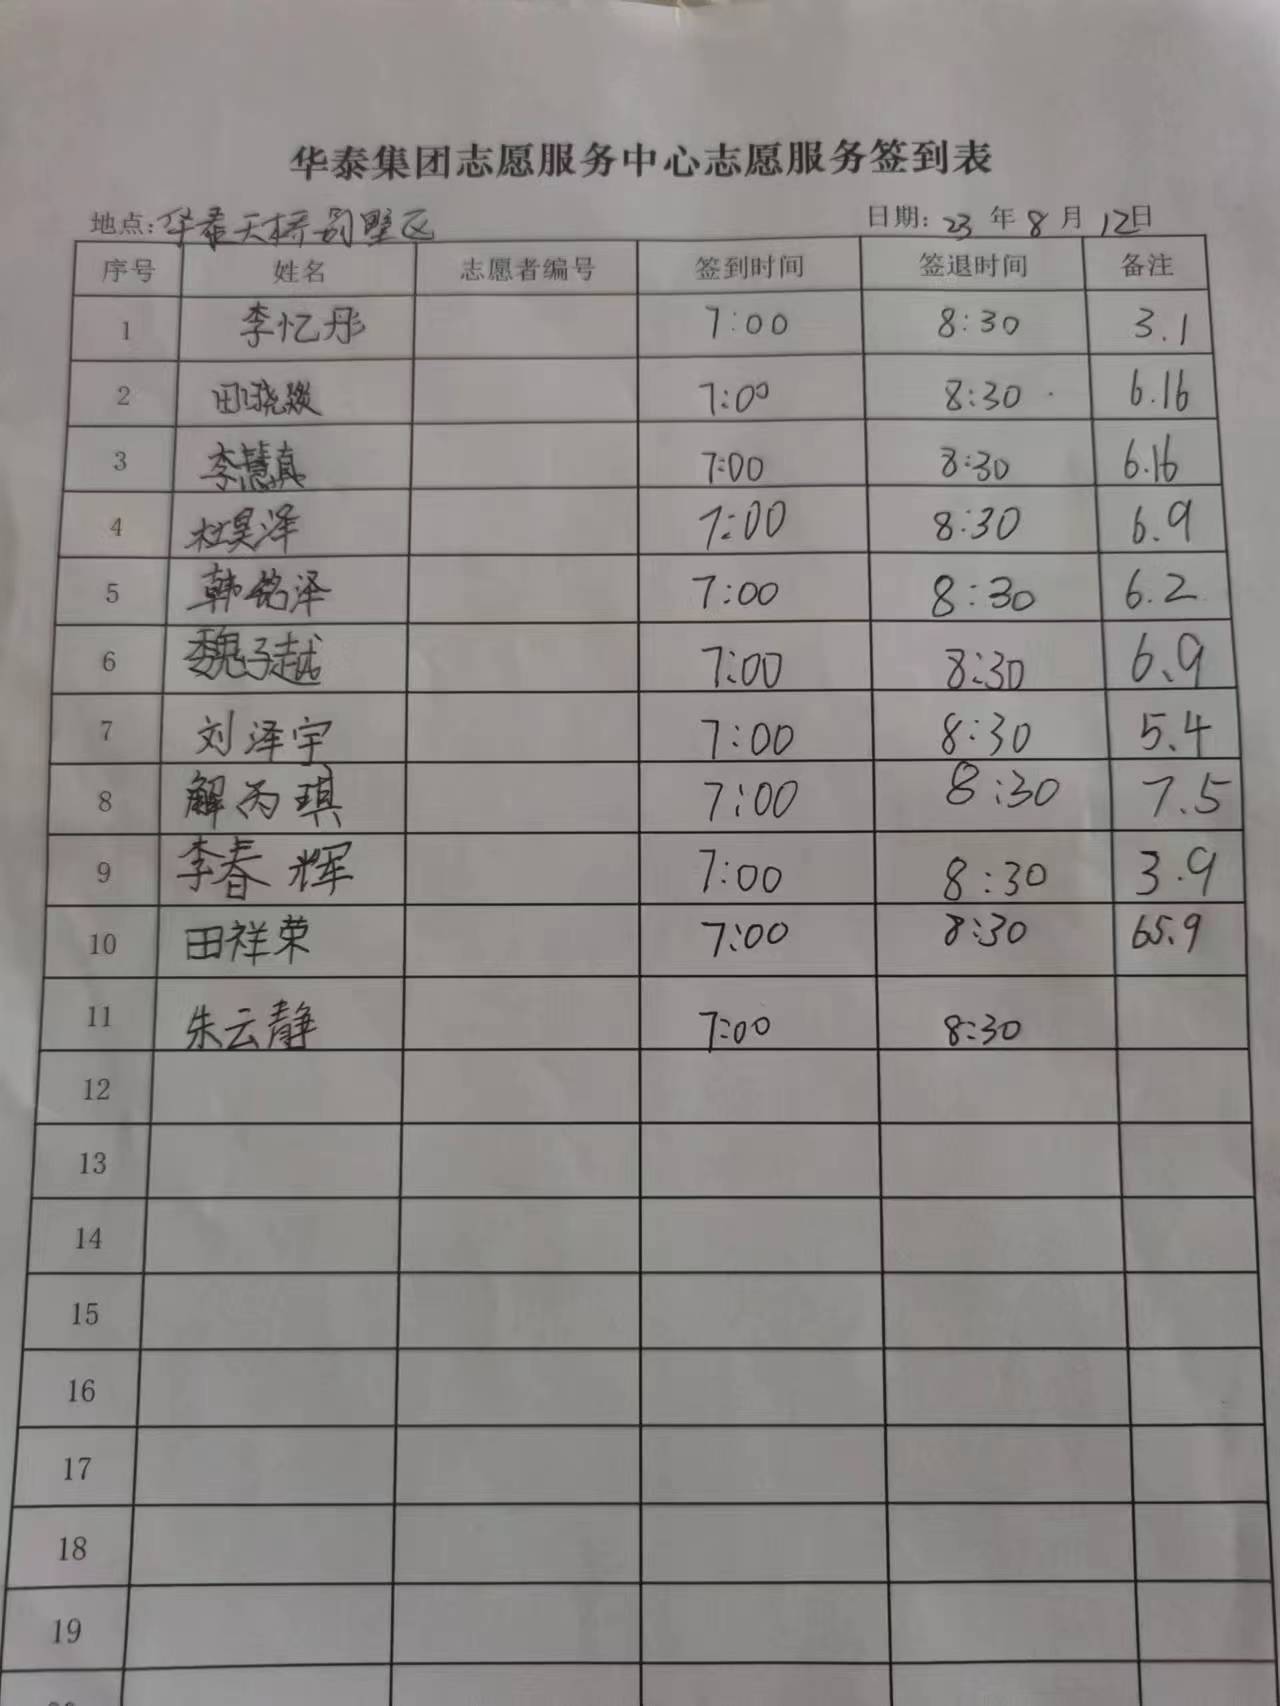 华泰集团志愿服务中心志愿服务签到表
地点:华泰天桥别墅区 日期: 23 年 8 月 12日
序号 姓名 志愿者编号 签到时间 签退时间 备注
1 李忆彤 7:00 8:30 3.1
2 田晓燚 7:00 8:30 6.16
3 李慧真 7:00 8:30 6.16
4 杜昊泽 7:00 8:30 6.9
5 韩铭泽 7:00 8:30 6.2
6 魏子越 7:00 8:30 6.9
7 刘泽宇 7:00 8:30 5.4
8 解丙琪 7:00 8:30 7.5
9 李春辉 7:00 8:30 3.9
10 田祥荣 7:00 8:30 65.9
11 朱云静 7:00 8:30
12
13
14
15
16
17
18
19